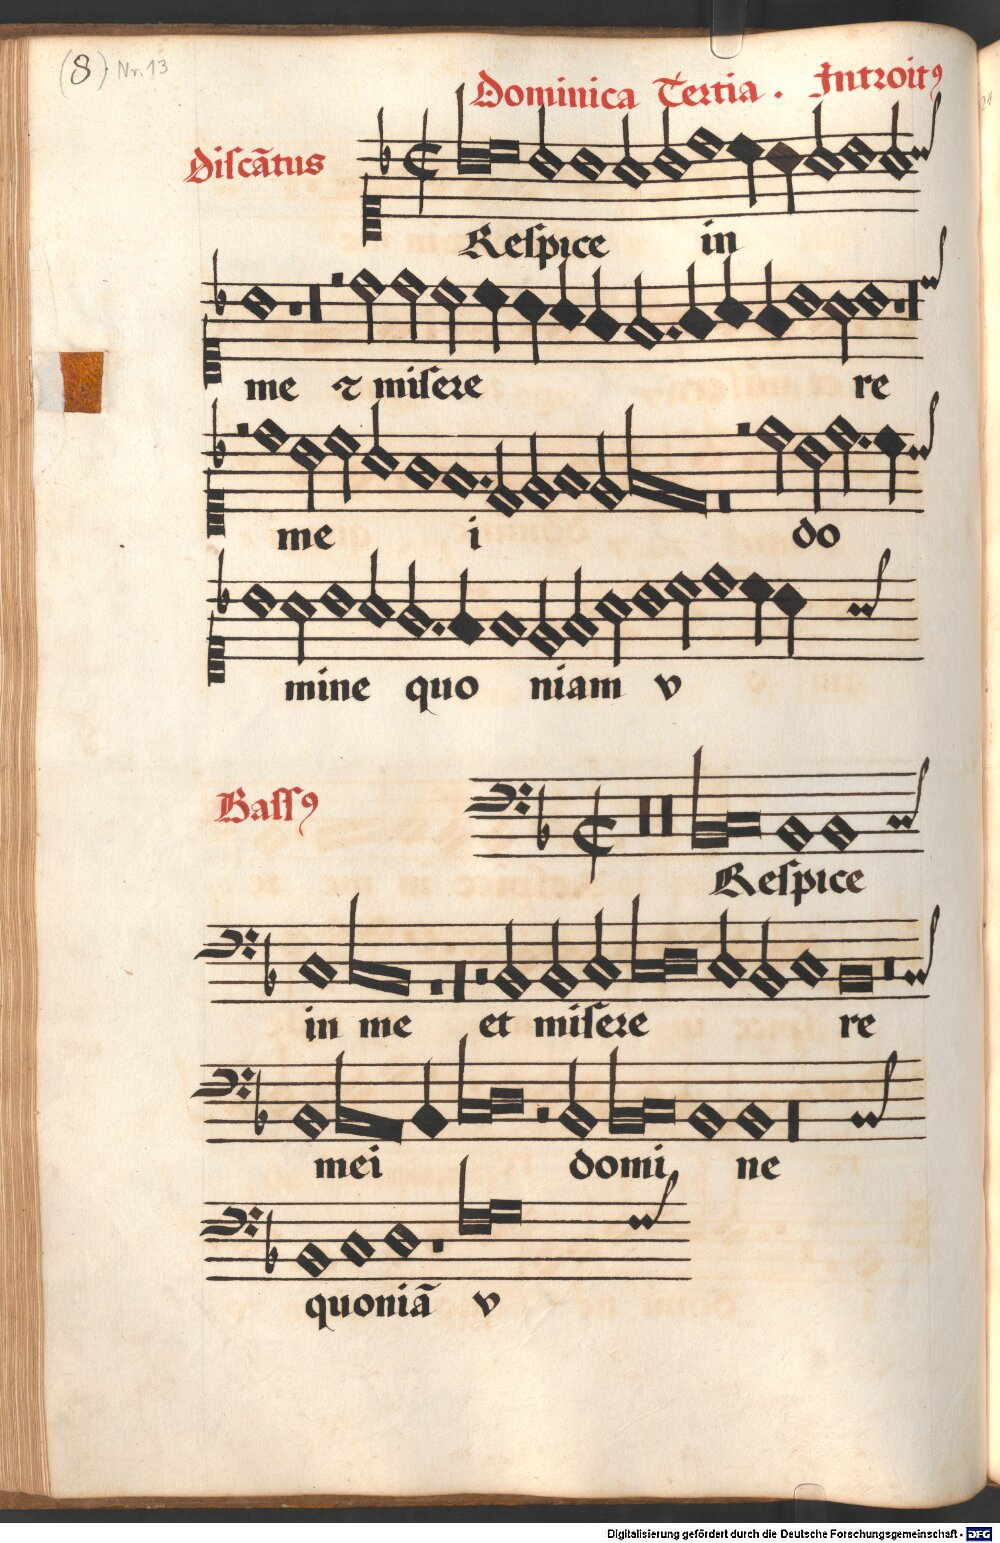 (8) Nr. 13
Dominica Tertia . Introitꝰ
Discãtus
Respice in
me ⁊ misere re
me i do
mine quo niam v
Bassꝰ
Respice
in me et misere re
mei domi ne
quoniã v
Digitalisierung gefördert durch die Deutsche Forschungsgemeinschaft - DFG